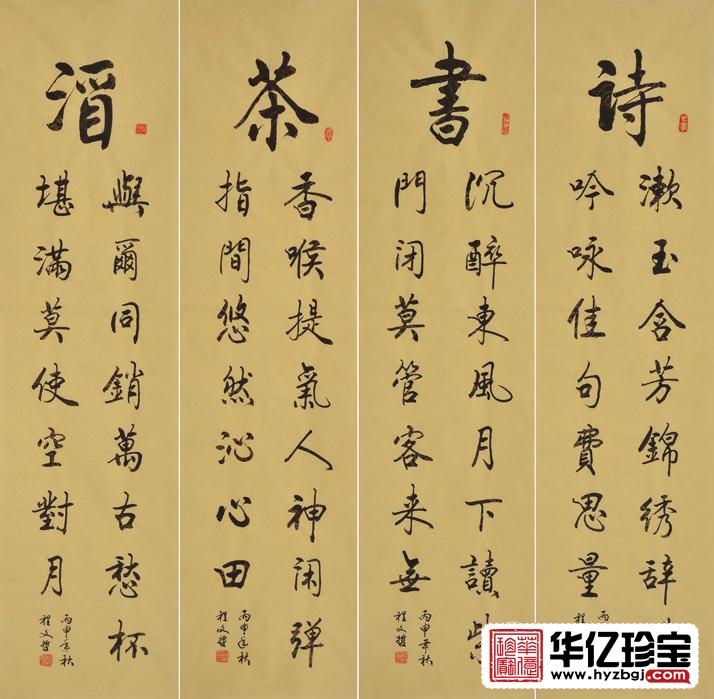 詩
漱玉含芳錦绣辞
吟咏佳句費思量
程
書
沉醉東風月下讀
門闭莫管客来無
丙申年秋
程文哲
茶
香喉提氣人神闲弹
指間悠然沁心田
丙申年秋
程文哲
酒
與爾同銷萬古愁杯
堪滿莫使空對月
丙申年秋
程文哲
华亿珍宝
www.hyzbgj.com